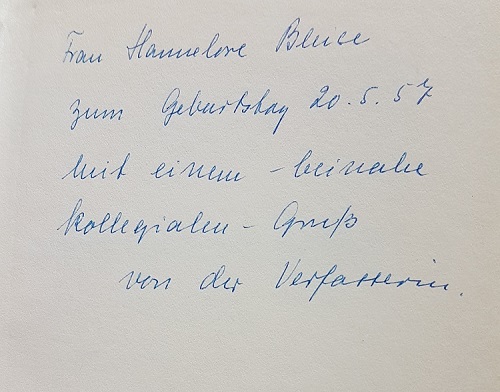 Frau Hannelore
zum Geburtstag 20.5.57
mit einem - beinahe
kollegialen - Gruß
von der Verfasserin.